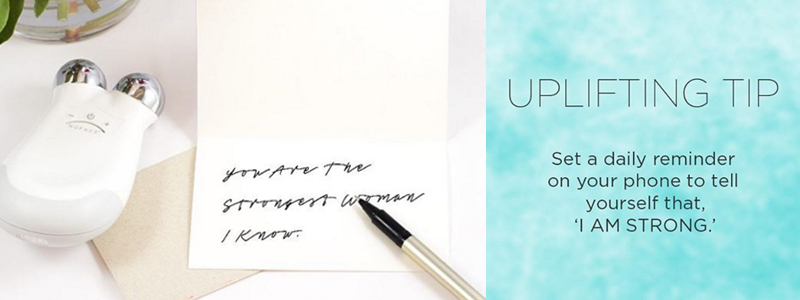 NUFACE
You Are The
Strongest Woman
I Know.
UPLIFTING TIP
Set a daily reminder
on your phone to tell
yourself that,
‘I AM STRONG.’